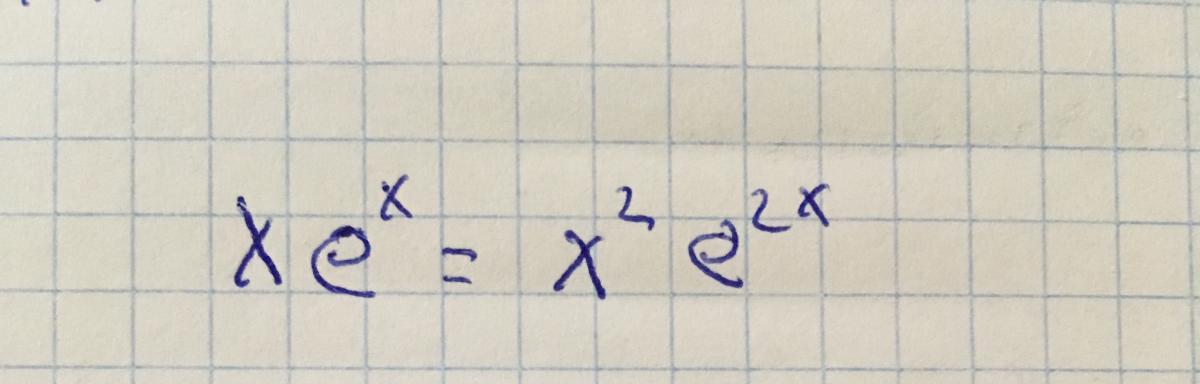 xeˣ = x² e²ˣ